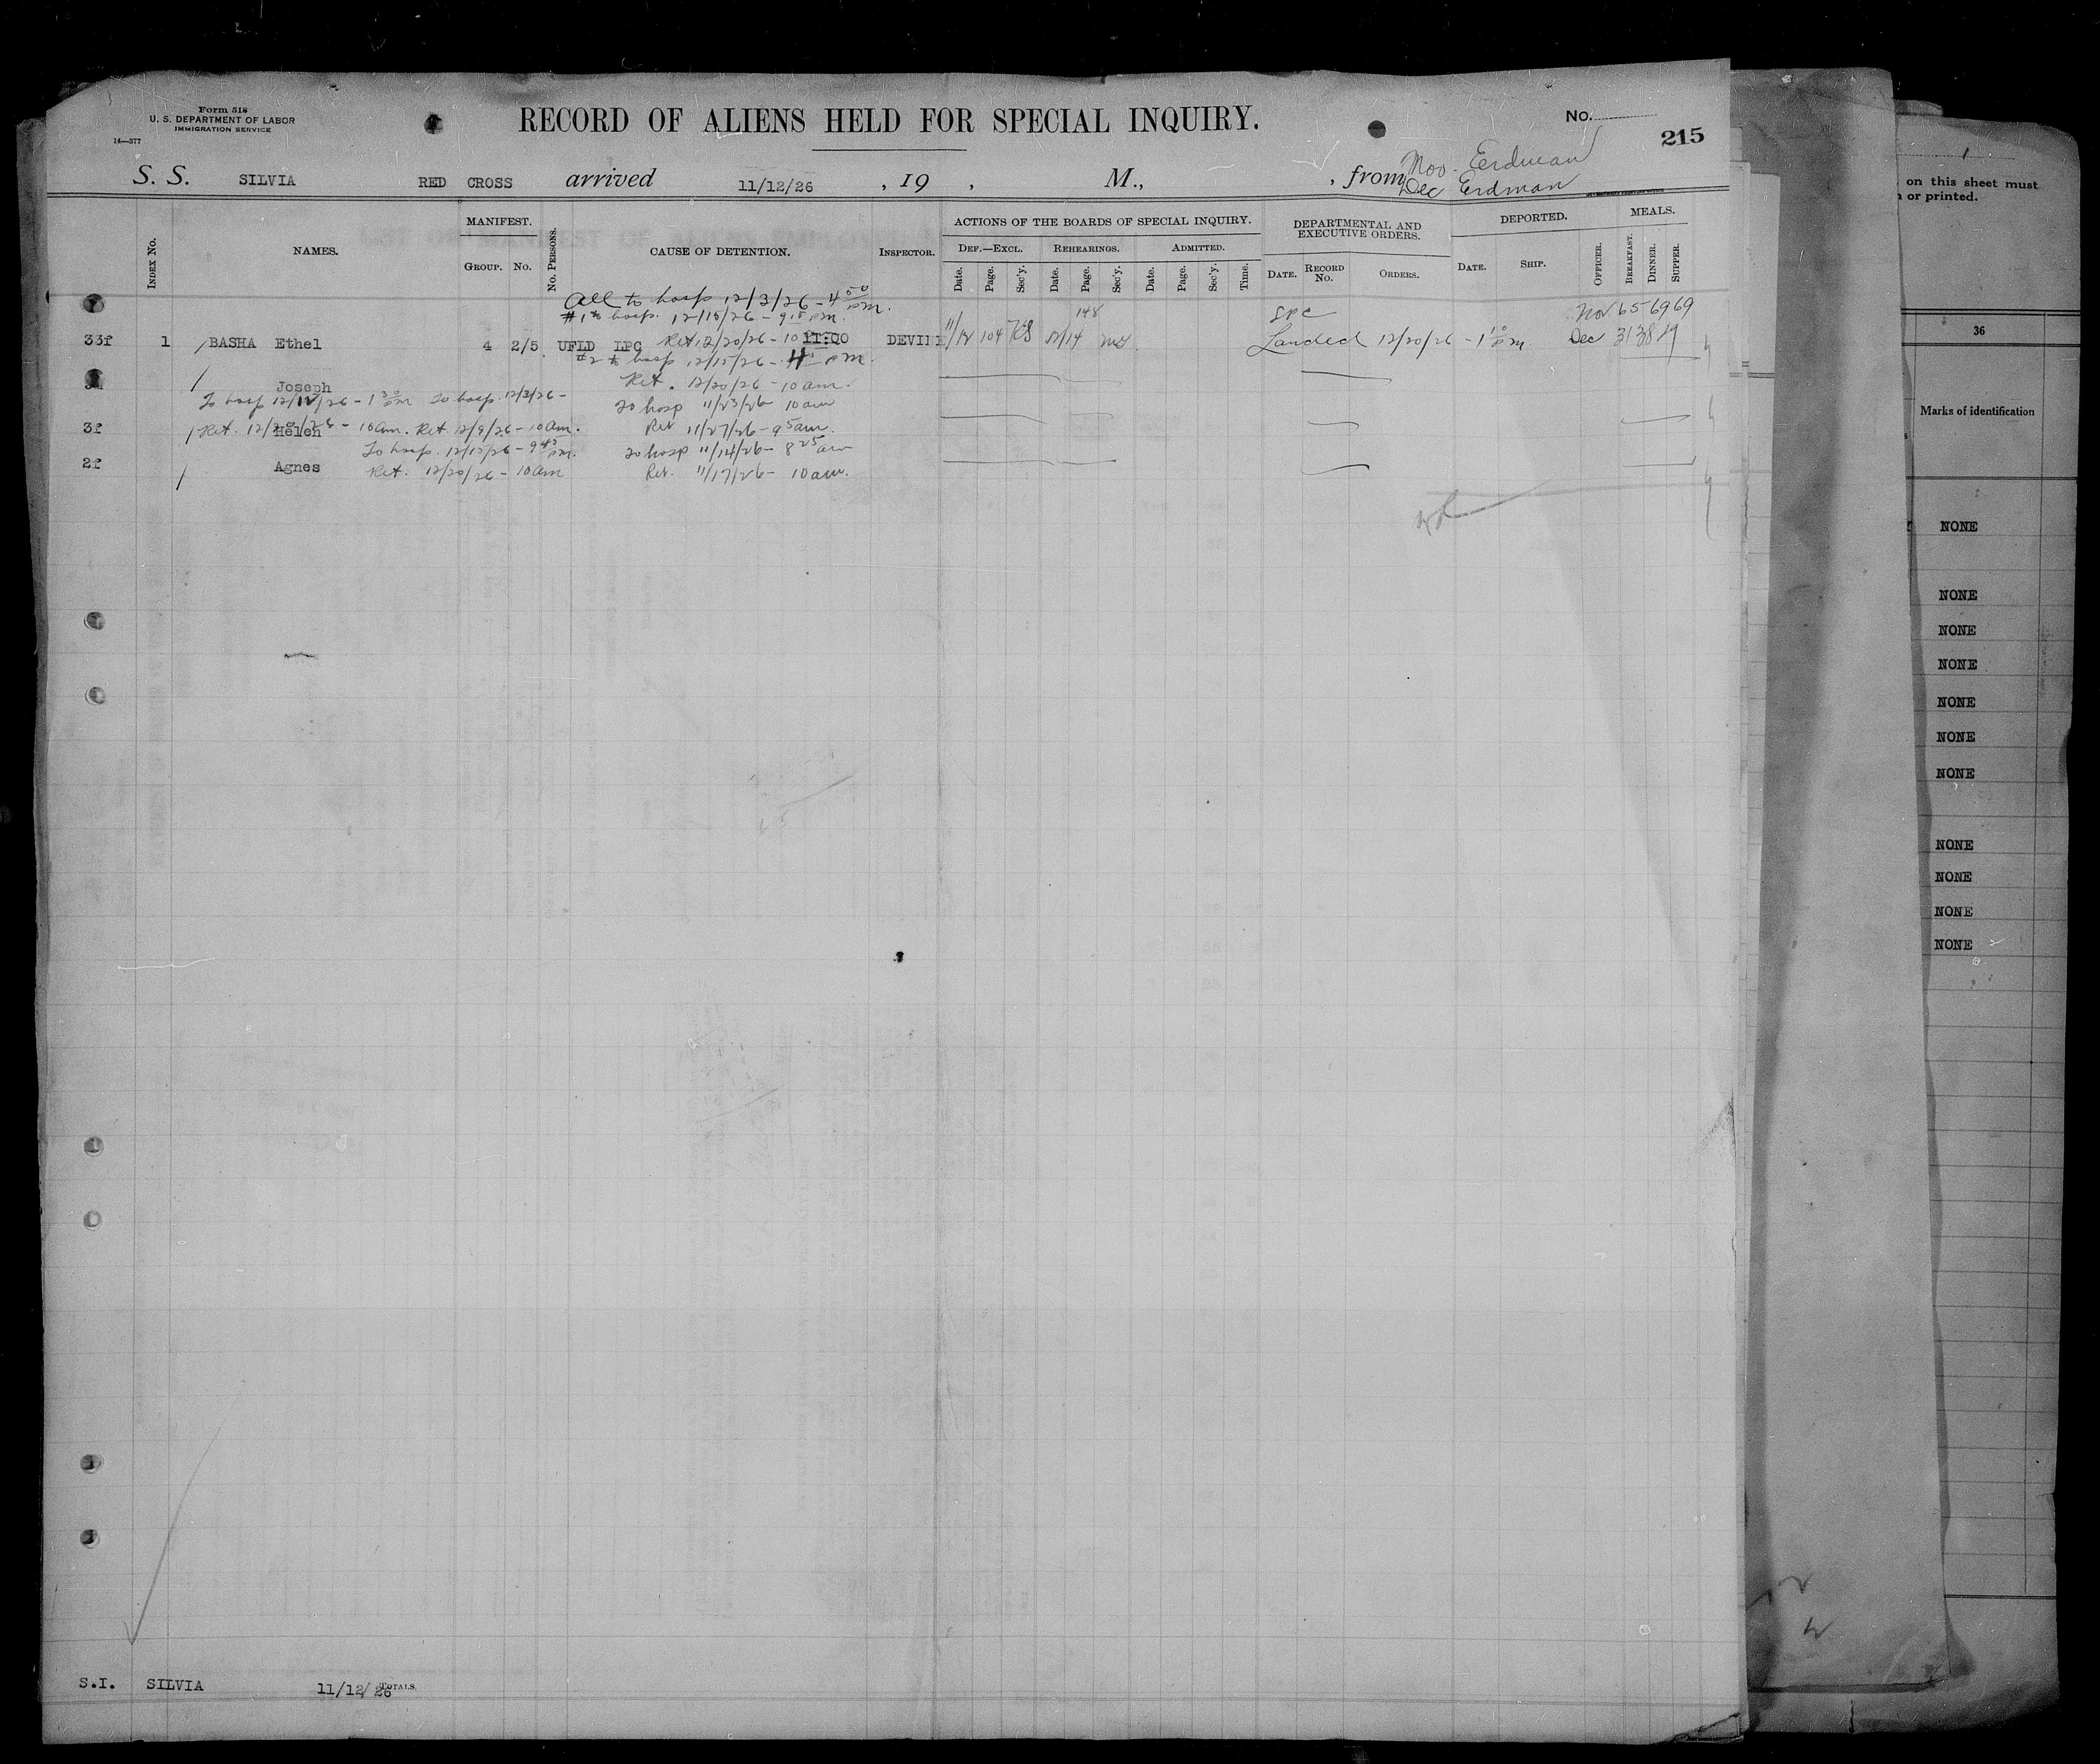 Form 518
U. S. DEPARTMENT OF LABOR
IMMIGRATION SERVICE
14—377
RECORD OF ALIENS HELD FOR SPECIAL INQUIRY.
No.
215
S. S. SILVIA RED CROSS arrived 11/12/26 , 19 , M., , from Nov. Erdman
Dec Erdman
on this sheet must
or printed.
INDEX No. NAMES. MANIFEST. GROUP. No. No. PERSONS. CAUSE OF DETENTION. INSPECTOR. ACTIONS OF THE BOARDS OF SPECIAL INQUIRY. DEPARTMENTAL AND EXECUTIVE ORDERS. DEPORTED. MEALS.
DEF.—EXCL. REHEARINGS. ADMITTED.
Date. Page. Sec'y. Date. Page. Sec'y. Date. Page. Sec'y. Time. DATE. RECORD No. ORDERS. DATE. SHIP. OFFICER. BREAKFAST. DINNER. SUPPER.
All to hosp 12/3/26 - 4 50 PM.
#1 to hosp. 12/15/26 - 9 15 PM. 148 SPC Nov 65 69 69
33f 1 BASHA Ethel 4 2/5 UFLD LPC Ret 12/20/26 - 10 DEVINE 11/12 104 KS 12/14 Landed 12/20/26 - 1 10 PM Dec 31 38 19
#2 to hosp 12/15/26 - PM.
Joseph Ret. 12/20/26 - 10 am.
To hosp 12/12/26 - 1 30 PM To hosp. 12/3/26 - To hosp 11/23/26 10 am
3f Helen Ret. 12/20/26 - 10 Am. Ret. 12/9/26 - 10 Am. Ret 11/27/26 - 9 5 am.
To hosp. 12/15/26 - 9 45 PM. To hosp 11/14/26 - 8 25 am
2f Agnes Ret. 12/20/26 - 10 am Ret. 11/17/26 - 10 am.
36
Marks of identification
NONE
NONE
NONE
NONE
NONE
NONE
NONE
NONE
NONE
NONE
NONE
S.I. SILVIA 11/12/26 TOTALS